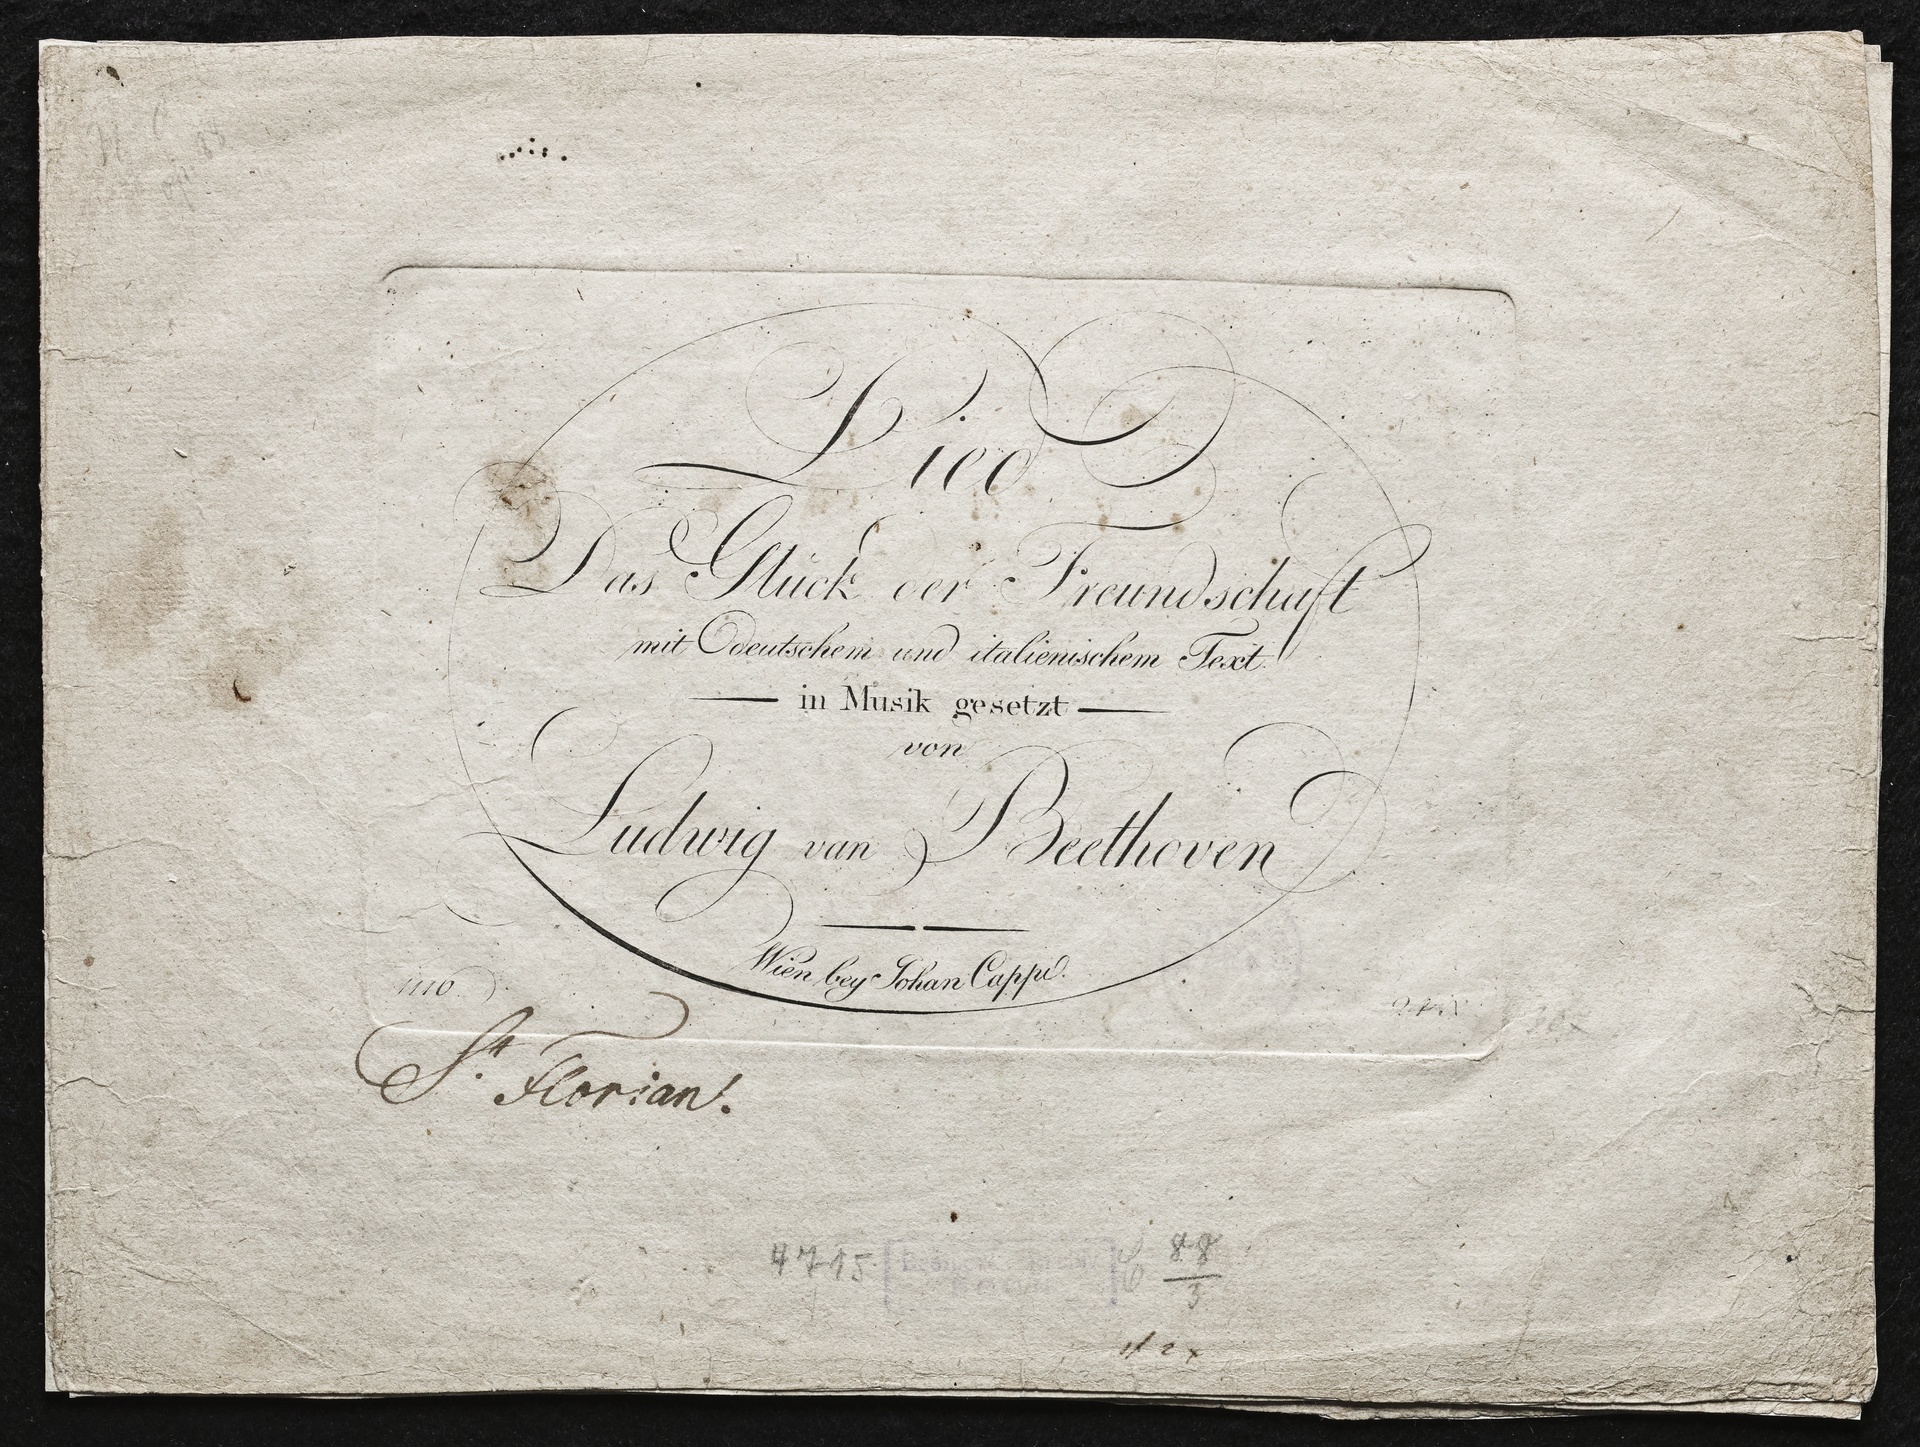 Lied
Das Glück der Freundschaft
mit deutschem und italienischem Text
in Musik gesetzt
von
Ludwig van Beethoven
Wien bey Johan Cappi.
1116
St. Florian.
4715
88
3